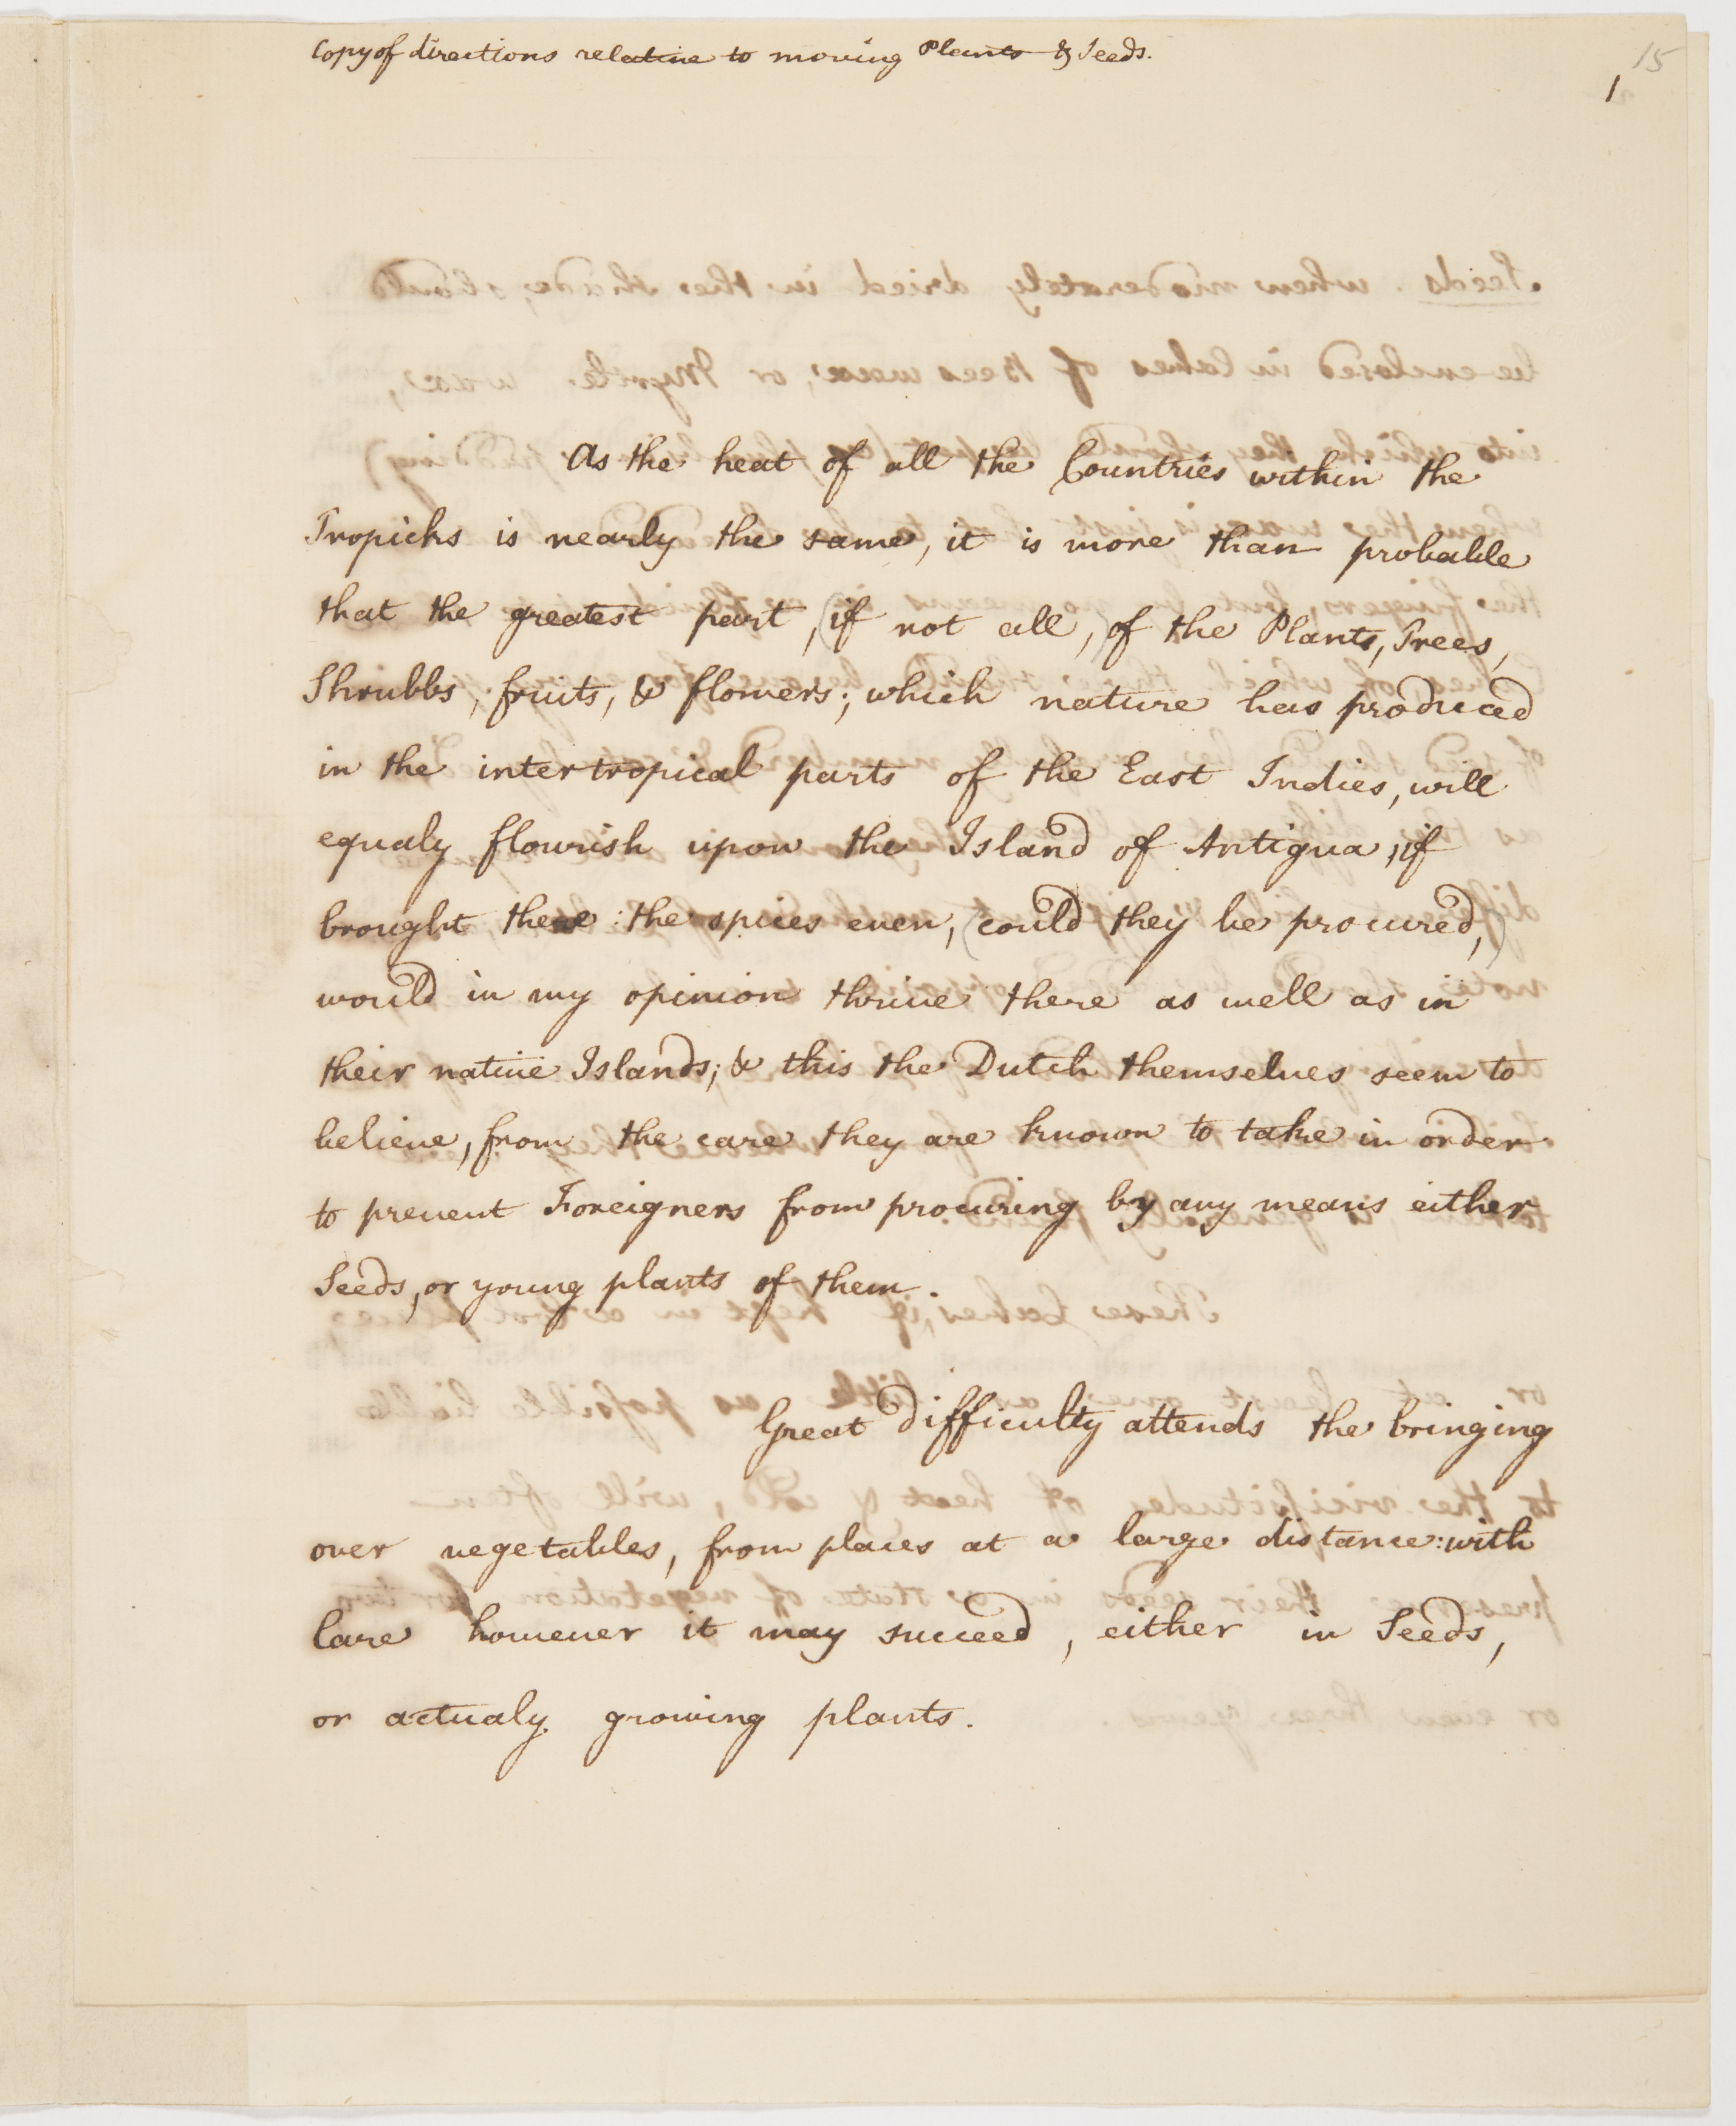 Copy of directions relative to moving Plants & Seeds.
15
1
As the heat of all the Countries within the
Tropicks is nearly the same, it is more than probable
that the greatest part, (if not all,) of the Plants, Trees,
Shrubbs, fruits, & flowers; which nature has produced
in the intertropical parts of the East Indies, will
equaly flourish upon the Island of Antigua, if
brought there: the spices even, (could they be procured,)
would in my opinion thrive there as well as in
their native Islands; & this the Dutch themselves seem to
believe, from the care they are known to take in order
to prevent Foreigners from procuring by any means either
Seeds, or young plants of them.
Great difficulty attends the bringing
over vegetables, from places at a large distance: with
Care however it may succeed, either in Seeds,
or actualy growing plants.